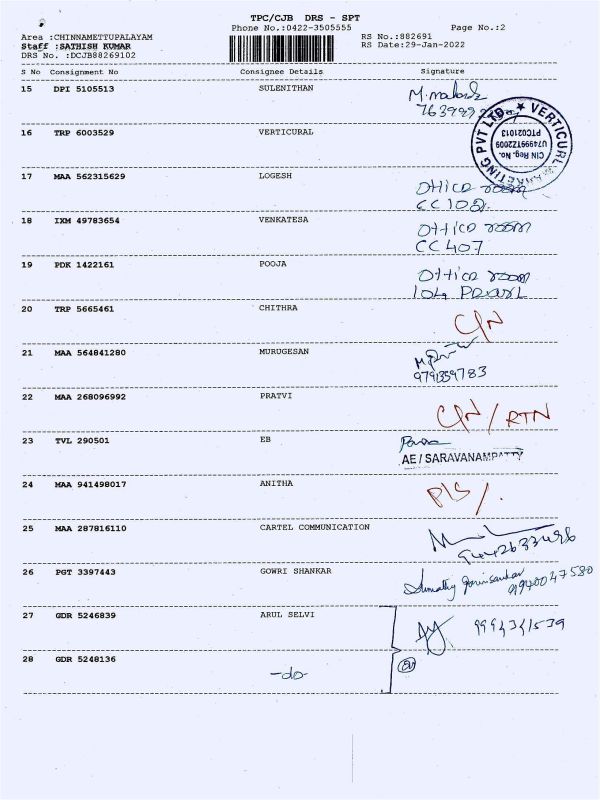 TPC/CJB DRS - SPT
Phone No.:0422-3505555 Page No.:2
Area :CHINNAMETTUPALAYAM RS No.:882691
Staff :SATHISH KUMAR RS Date:29-Jan-2022
DRS No. :DCJB88269102
S No Consignment No Consignee Details Signature
15 DPI 5105513 SULENITHAN
16 TRP 6003529 VERTICURAL
VERTICURL MARKETING PVT LTD
CIN Reg. No.
U74999TZ2009
PTC021013
17 MAA 562315629 LOGESH
Office room
CC 102
18 IXM 49783654 VENKATESA Office room
CC 407
19 PDK 1422161 POOJA Office room
104 Pearl
20 TRP 5665461 CHITHRA C/N
21 MAA 564841280 MURUGESAN
9791359783
22 MAA 268096992 PRATVI C/N / RTN
23 TVL 290501 EB
AE / SARAVANAMPATTY
24 MAA 941498017 ANITHA P/S /.
25 MAA 287816110 CARTEL COMMUNICATION
9442633496
26 PGT 3397443 GOWRI SHANKAR
9940047580
27 GDR 5246839 ARUL SELVI 9994341539
28 GDR 5248136
-do-